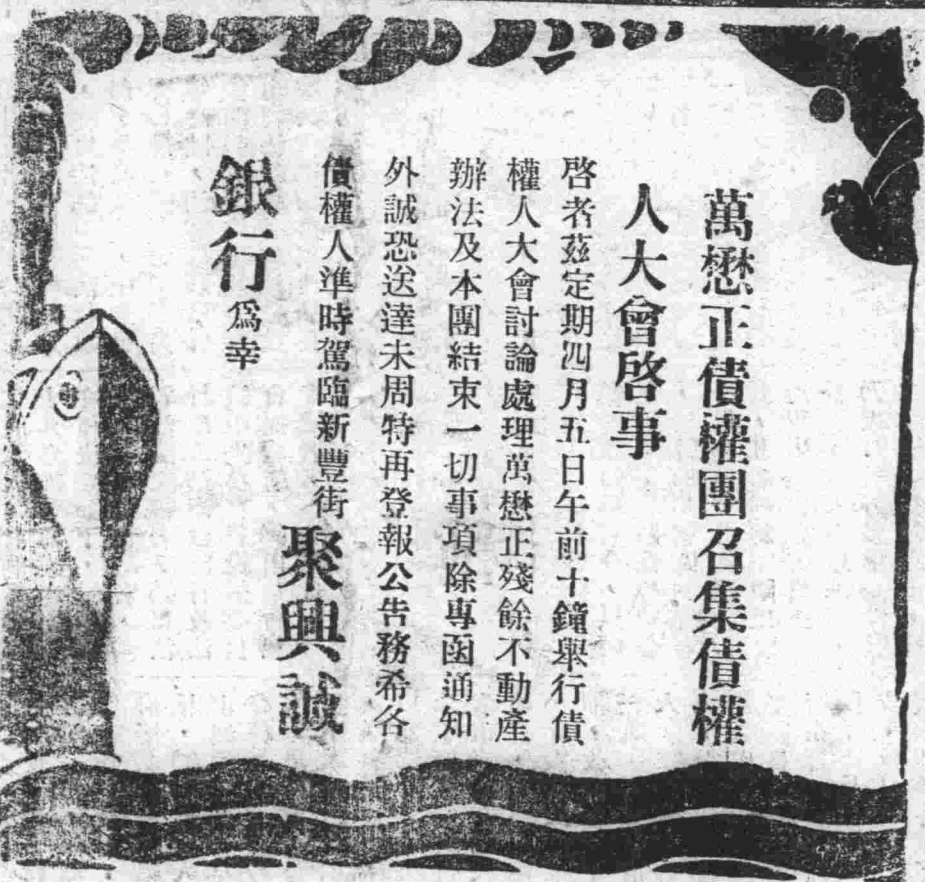 萬懋正債權團召集債權
人大會啓事
啓者茲定期四月五日午前十鐘舉行債
權人大會討論處理萬懋正殘餘不動產
辦法及本團結束一切事項除專函通知
外誠恐送達未周特再登報公告務希各
債權人準時駕臨新豐街聚興誠
銀行爲幸